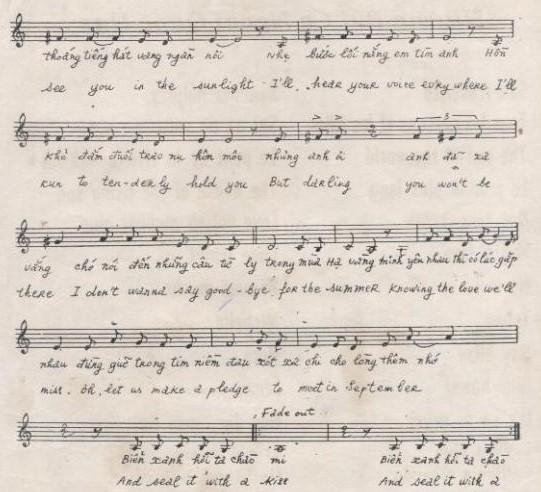 thoáng tiếng hát vang ngàn nơi Nhẹ bước lối nắng em tìm anh Hồn
see you in the sunlight I'll hear your voice ev'ry where I'll
khẽ đắm đuối trao nụ hôn môi nhưng anh ơi anh đã xa
run to ten-der ly hold you But darling you won't be
vắng chớ nói đến những câu từ ly trong mùa Hạ vàng mình yêu nhau thì có lúc gặp
there I don't wanna say good-bye for the summer Knowing the love we'll
nhau đừng giữ trong tim niềm đau xót xa chỉ cho lòng thêm nhớ
miss. oh, let us make a pledge to meet in September
Fade out
Biển xanh hỡi ta chào mi Biển xanh hỡi ta chào
And seal it with a kiss And seal it with a